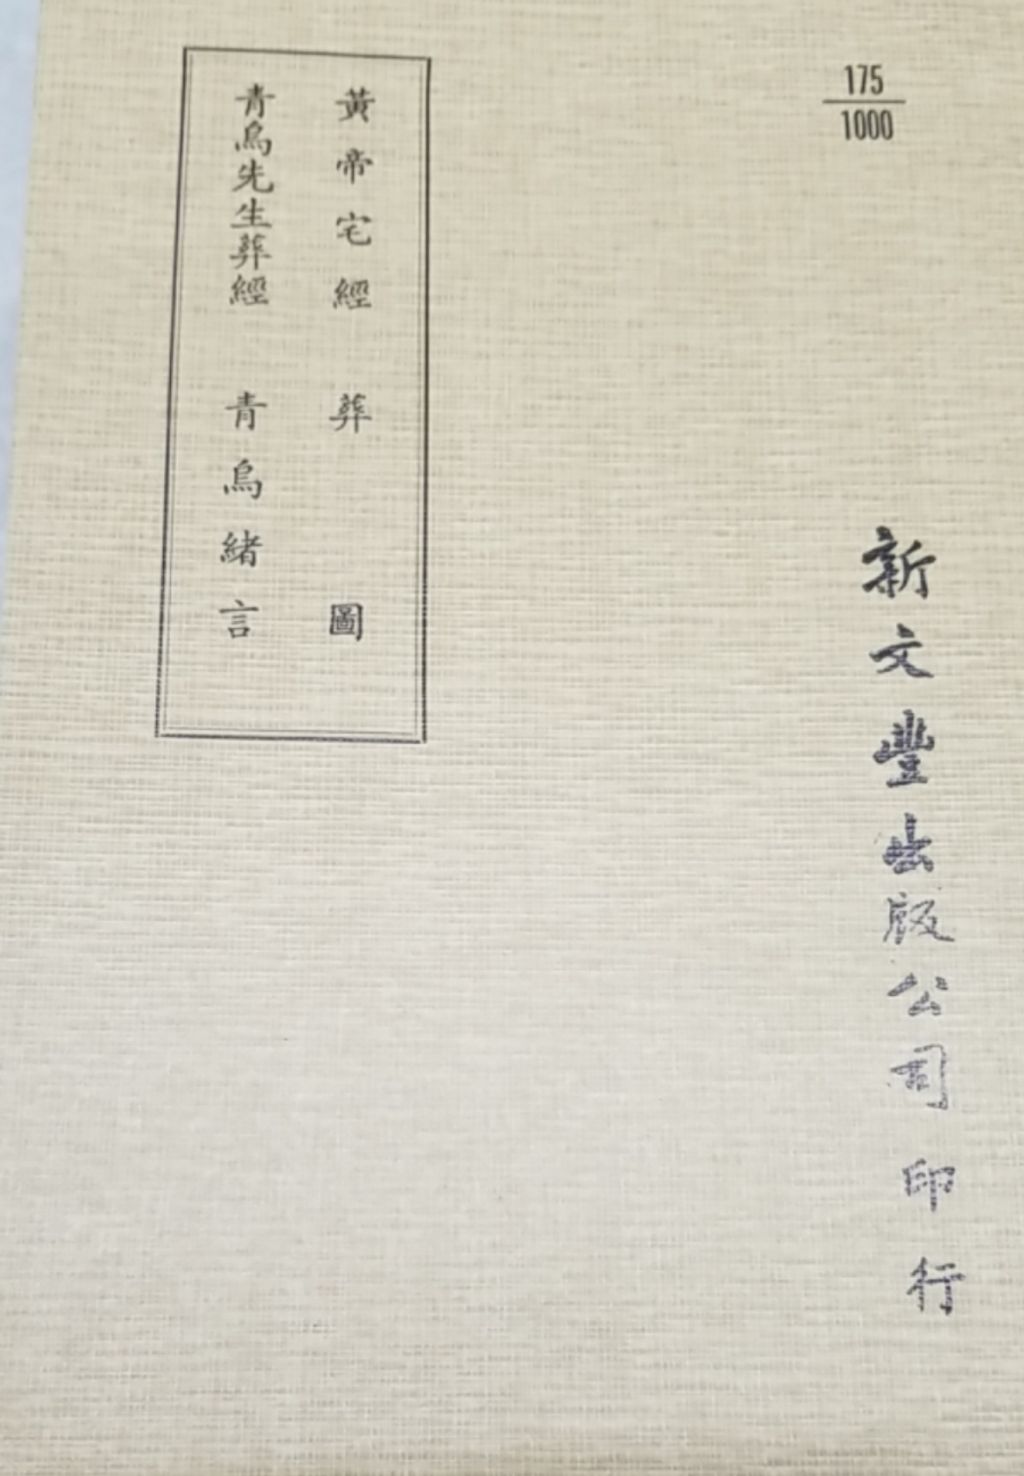 175
1000
新文豐出版公司 印行
黃帝宅經 葬圖
青烏先生葬經 青烏緒言